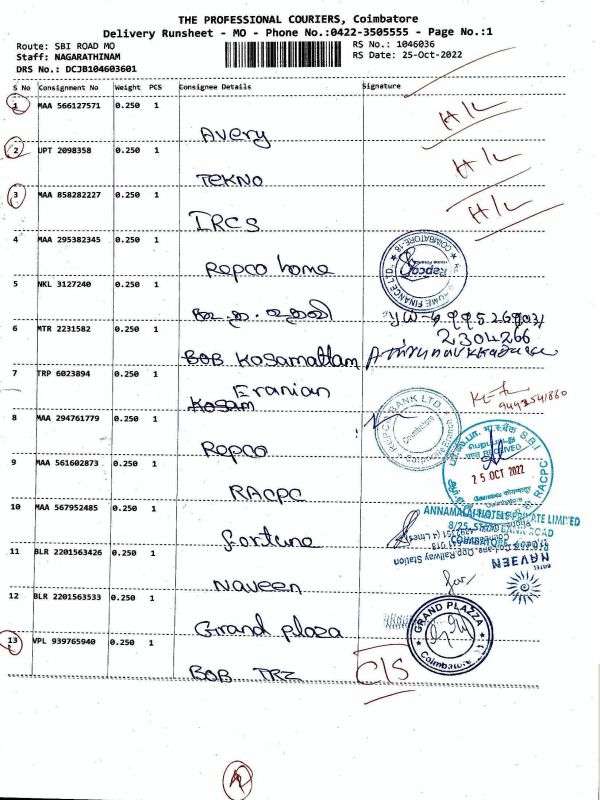 THE PROFESSIONAL COURIERS, Coimbatore
Delivery Runsheet - MO - Phone No.:0422-3505555 - Page No.:1
Route: SBI ROAD MO RS No.: 1046036
Staff: NAGARATHINAM RS Date: 25-Oct-2022
DRS No.: DCJB104603601
S No Consignment No Weight PCS Consignee Details Signature
1 MAA 566127571 0.250 1
Avery H/L
2 UPT 2098358 0.250 1
TEKNO H/L
3 MAA 858282227 0.250 1
IRCS H/L
4 MAA 295382345 0.250 1
Repco home
5 NKL 3127240 0.250 1
6 MTR 2231582 0.250 1
2304266
BOB Kosamattam
7 TRP 6023894 0.250 1
Eranian
Kosam
8 MAA 294761779 0.250 1
Repco
9 MAA 561602873 0.250 1
25 OCT 2022
RACPC
10 MAA 567952485 0.250 1
fortune
11 BLR 2201563426 0.250 1
NAVEEN
Naveen for
12 BLR 2201563533 0.250 1
Grand plaza
GRAND PLAZZA
Coimbatore
13 VPL 939765940 0.250 1
BOB TRZ C/S